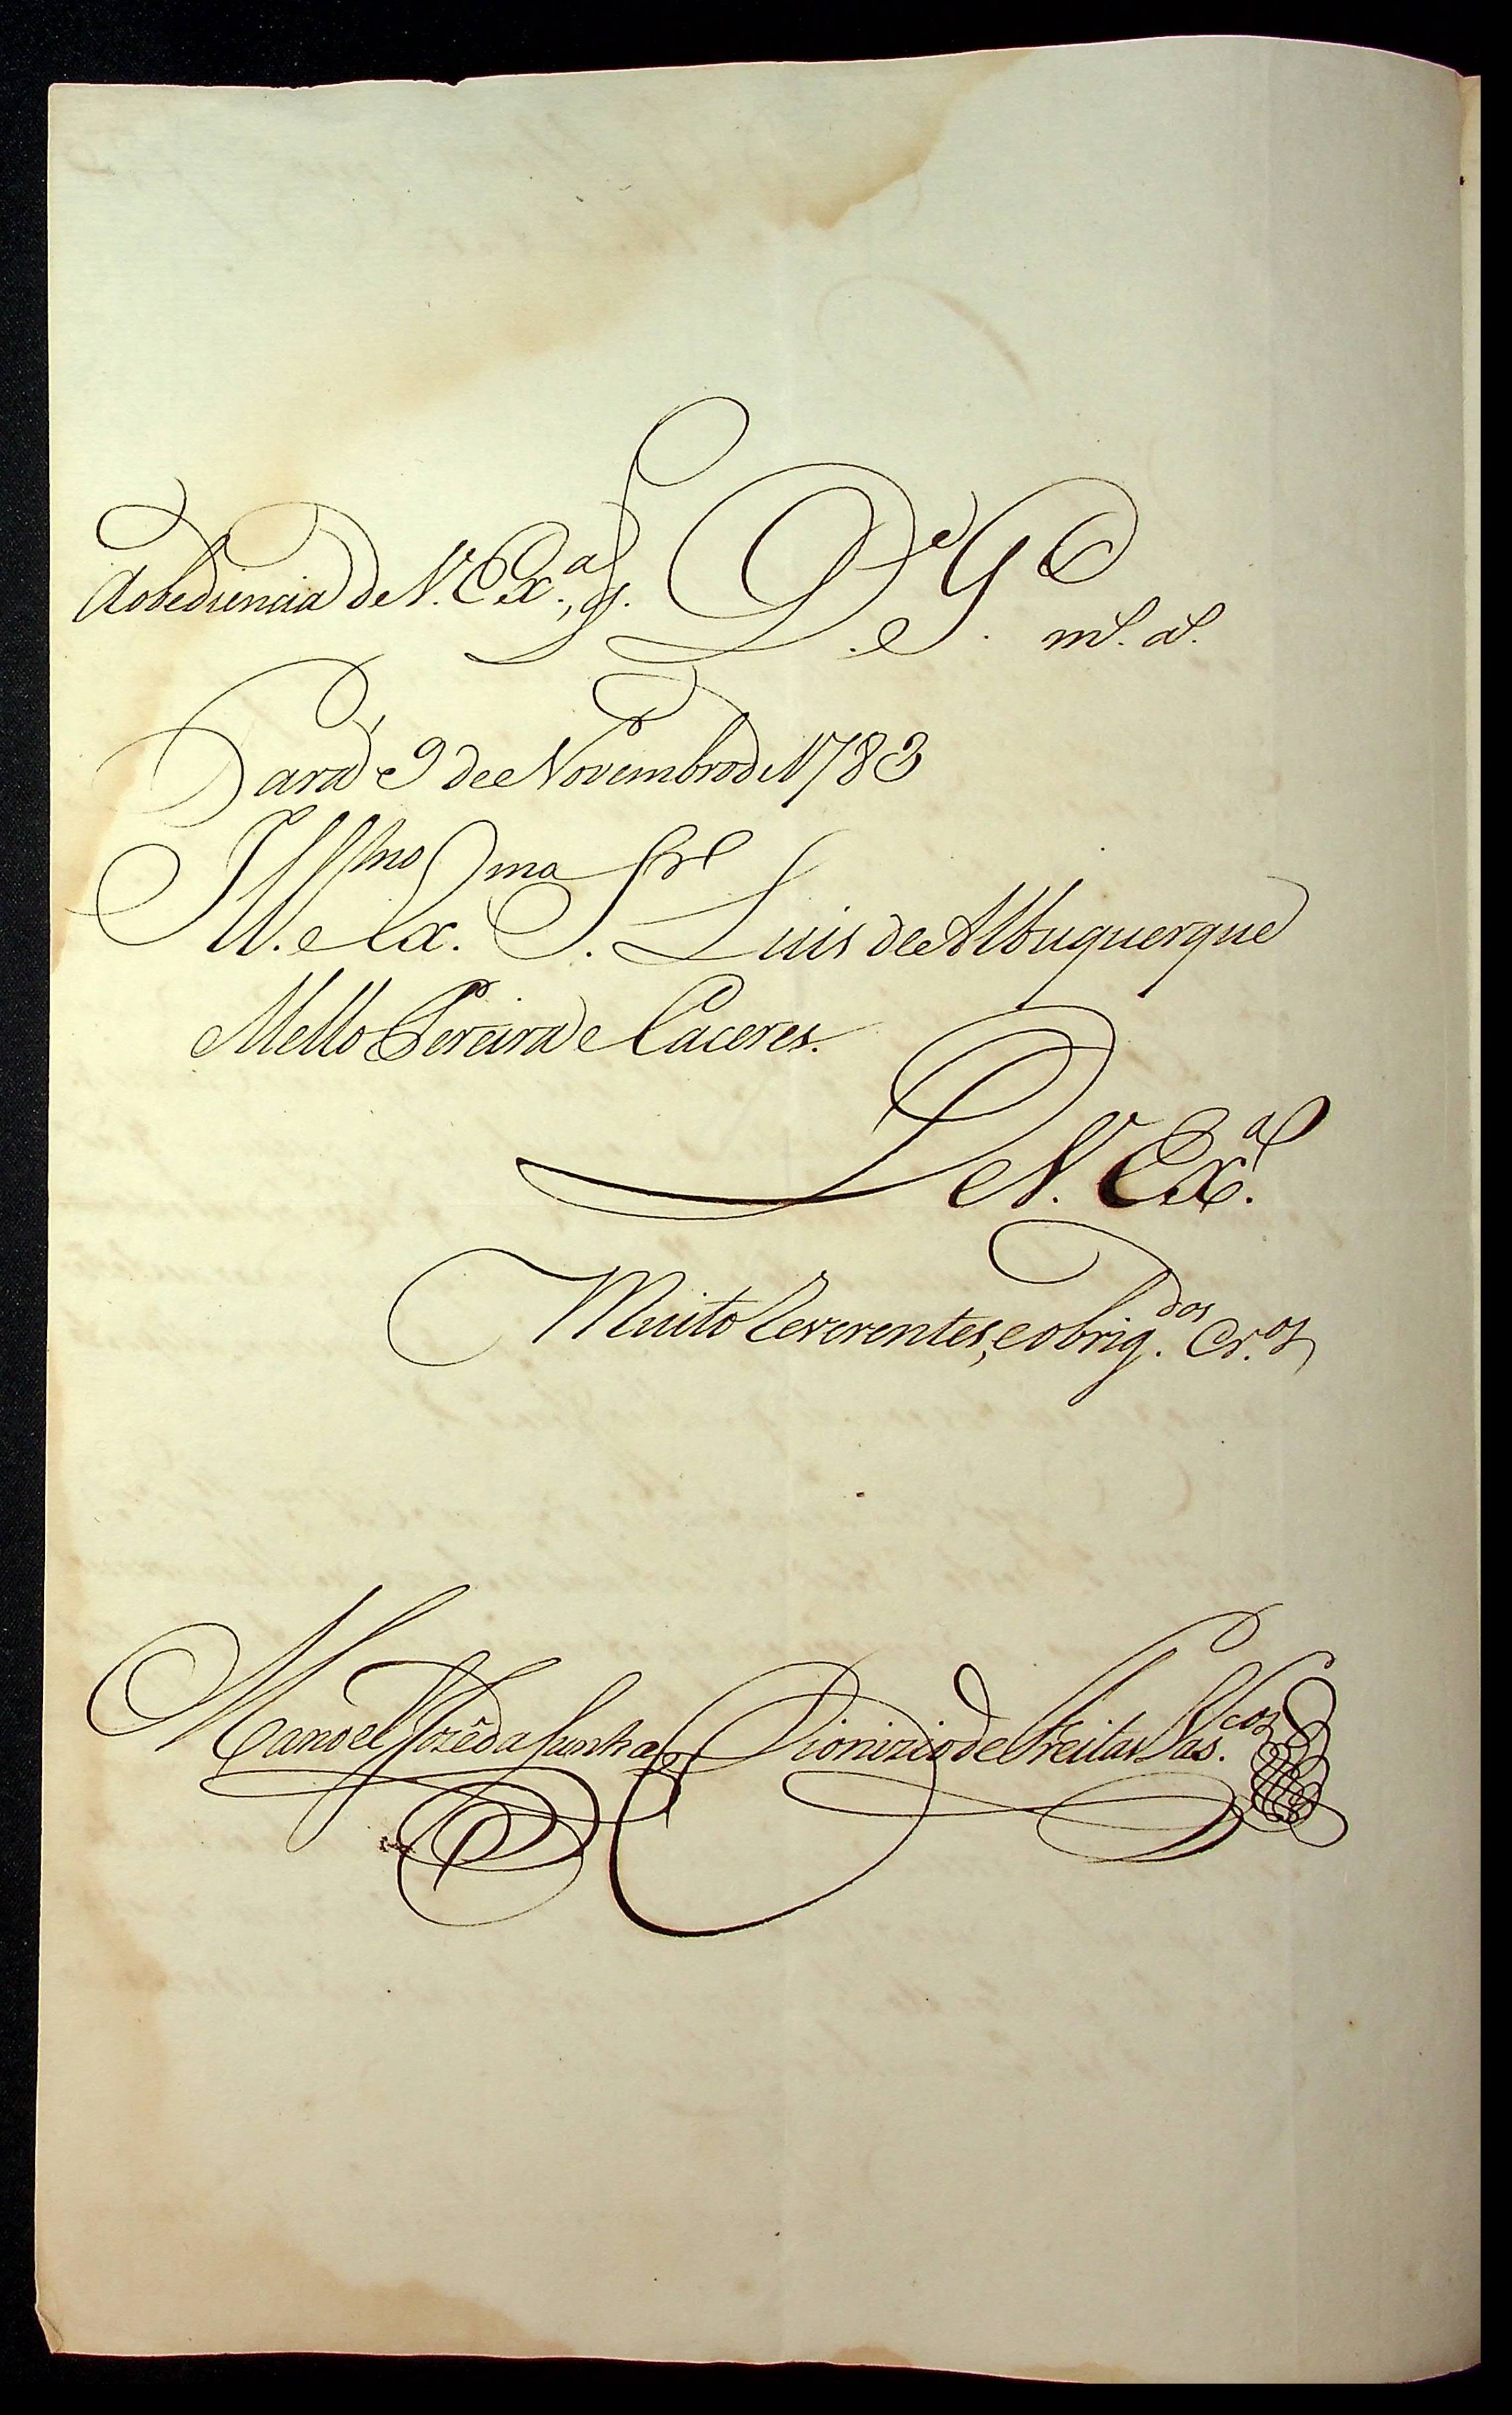 Aobediencia de V. Ex.ª, q. D.s g.e m.s a.s
Pará 9 de Novembro de 1783
Ill.mo e Ex.mo S.r Luis de Albuquerque
Mello Pereira e Caceres.
De V. Ex.ª
Muito Reverentes, e obrig.dos Cr.os
Manoel Jozé da Cunha Dionizio de Freitas Vas.cos